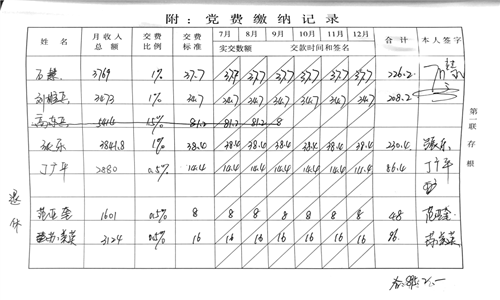 附：党费缴纳记录
姓名 月收入总额 交费比例 交费标准 7月 8月 9月 10月 11月 12月 合计 本人签字
实交数额 交款时间和签名
3769 1% 37.7 37.7 37.7 37.7 37.7 37.7 37.7 226.2
3473 1% 34.7 34.7 34.7 34.7 34.7 34.7 34.7 208.2
1.5% 81.2 81.2 81.2 8
张乐 3841.8 1% 38.4 38.4 38.4 38.4 38.4 38.4 38.4 230.4 张乐
丁广平 2880 0.5% 14.4 14.4 14.4 14.4 14.4 14.4 14.4 86.4 丁广平
范亚奎 1601 0.5% 8 8 8 8 8 8 8 48 范亚奎
苏美英 3124 0.5% 16 16 16 16 16 16 16 96 苏美英
退休
第一联存根